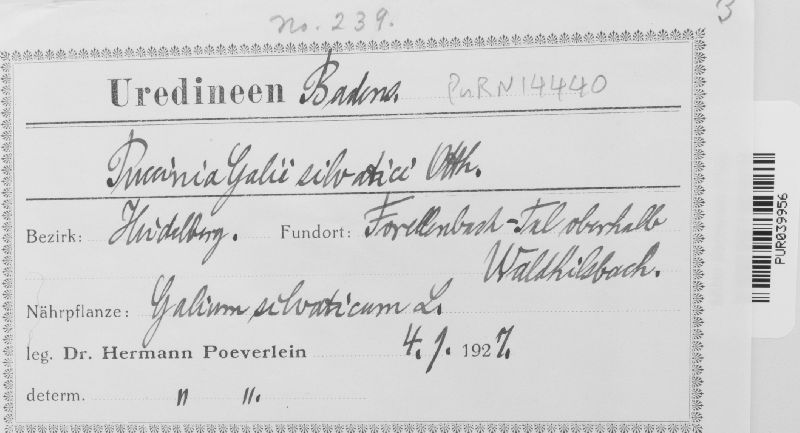 No. 239.
3
Uredineen Badens. PURN14440
Puccinia Galii silvatici Otth.
Bezirk: Heidelberg. Fundort: Forellenbach-Tal oberhalb
Waldhilsbach.
Nährpflanze: Galium silvaticum L.
leg. Dr. Hermann Poeverlein 4. 9. 1927.
determ. " ".
PUR039956